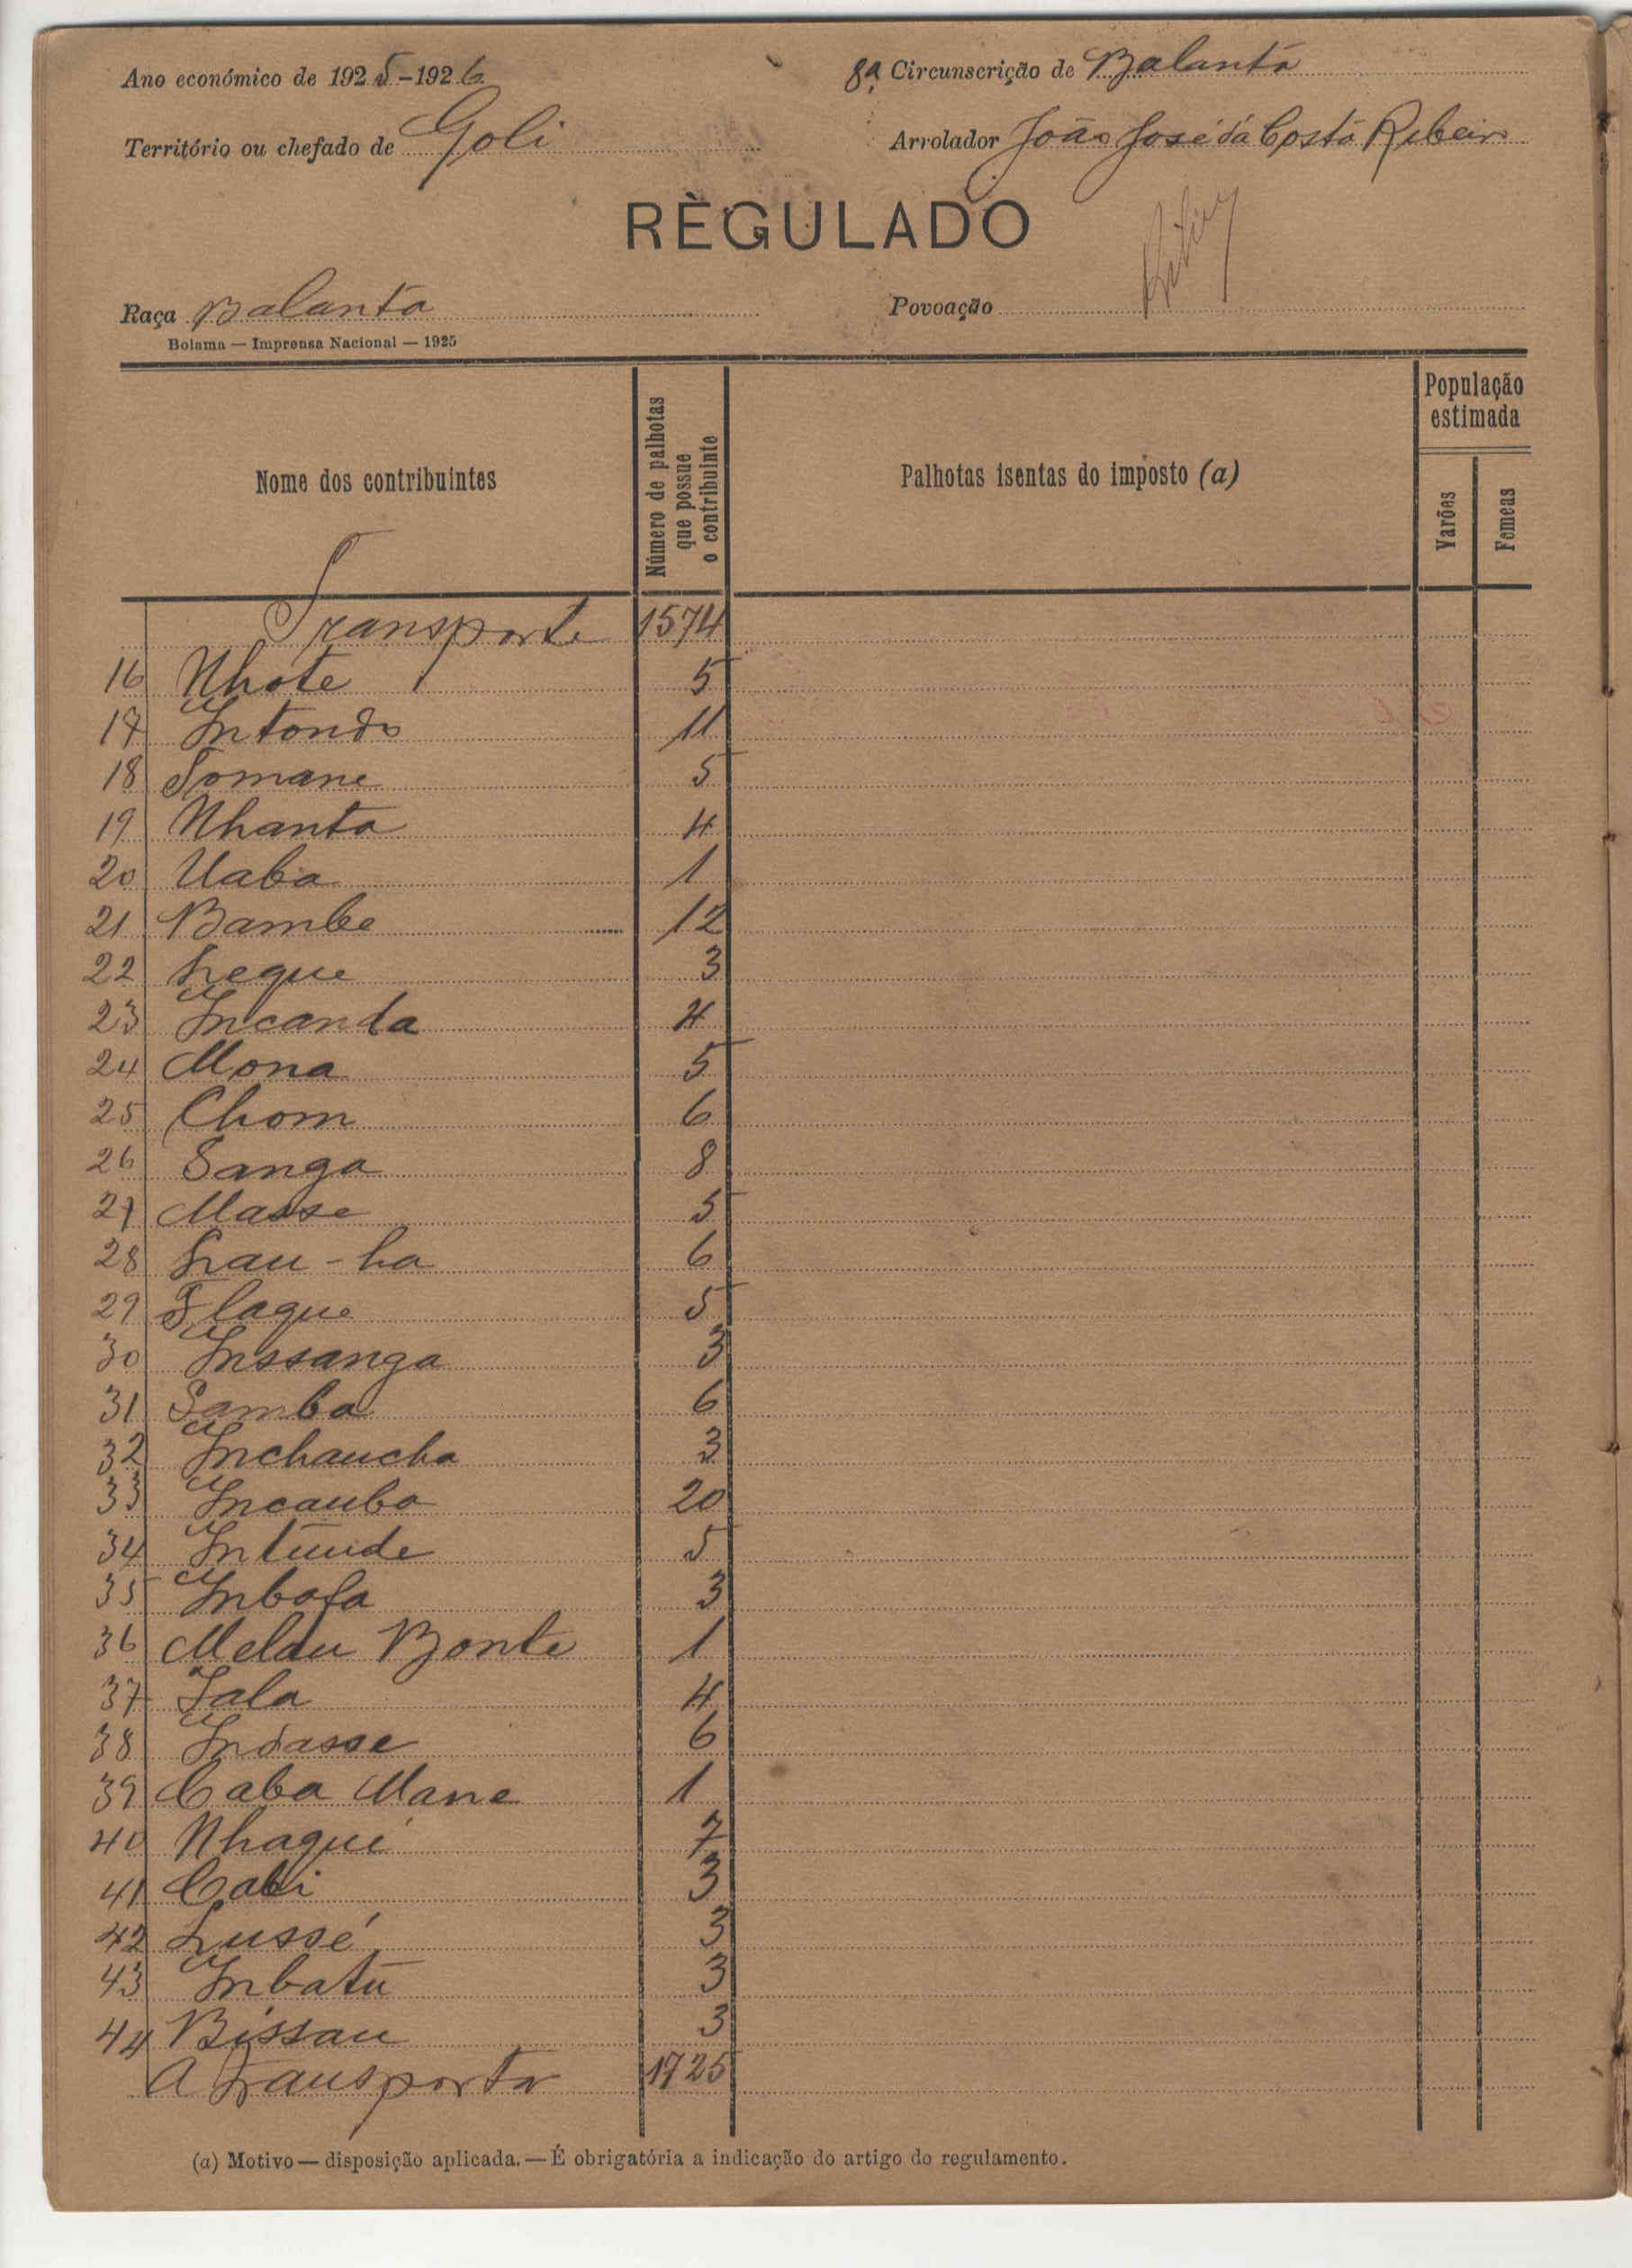 Ano económico de 1925-1926
8ª Circunscrição de Balanta
Território ou chefado de Goli
Arrolador João José da Costa Ribeiro
RÈGULADO
Raça Balanta
Povoação
Bolama — Imprensa Nacional — 1925
Nome dos contribuintes
Número de palhotas que possue o contribuinte
Palhotas isentas do imposto (a)
População estimada
Varões
Femeas
Transporte 1574
16 Nhote 5
17 Intondo 11
18 Somane 5
19 Nhanta 4
20 Uaba 1
21 Bambe 12
22 Seque 3
23 Incanda 4
24 Mona 5
25 Chom 6
26 Sanga 8
27 Masse 5
28 Sau-ha 6
29 Flaque 5
30 Inssanga 3
31 Samba 6
32 Inchaucha 3
33 Incauba 20
34 Intunde 5
35 Inbofa 3
36 Meldu Bonte 1
37 Tala 4
38 Indasse 6
39 Caba Mane 1
40 Nhaqui 7
41 Cabi 3
42 Lussé 3
43 Inbatu 3
44 Bissau 3
A Transporta 1725
(a) Motivo — disposição aplicada. — É obrigatória a indicação do artigo do regulamento.